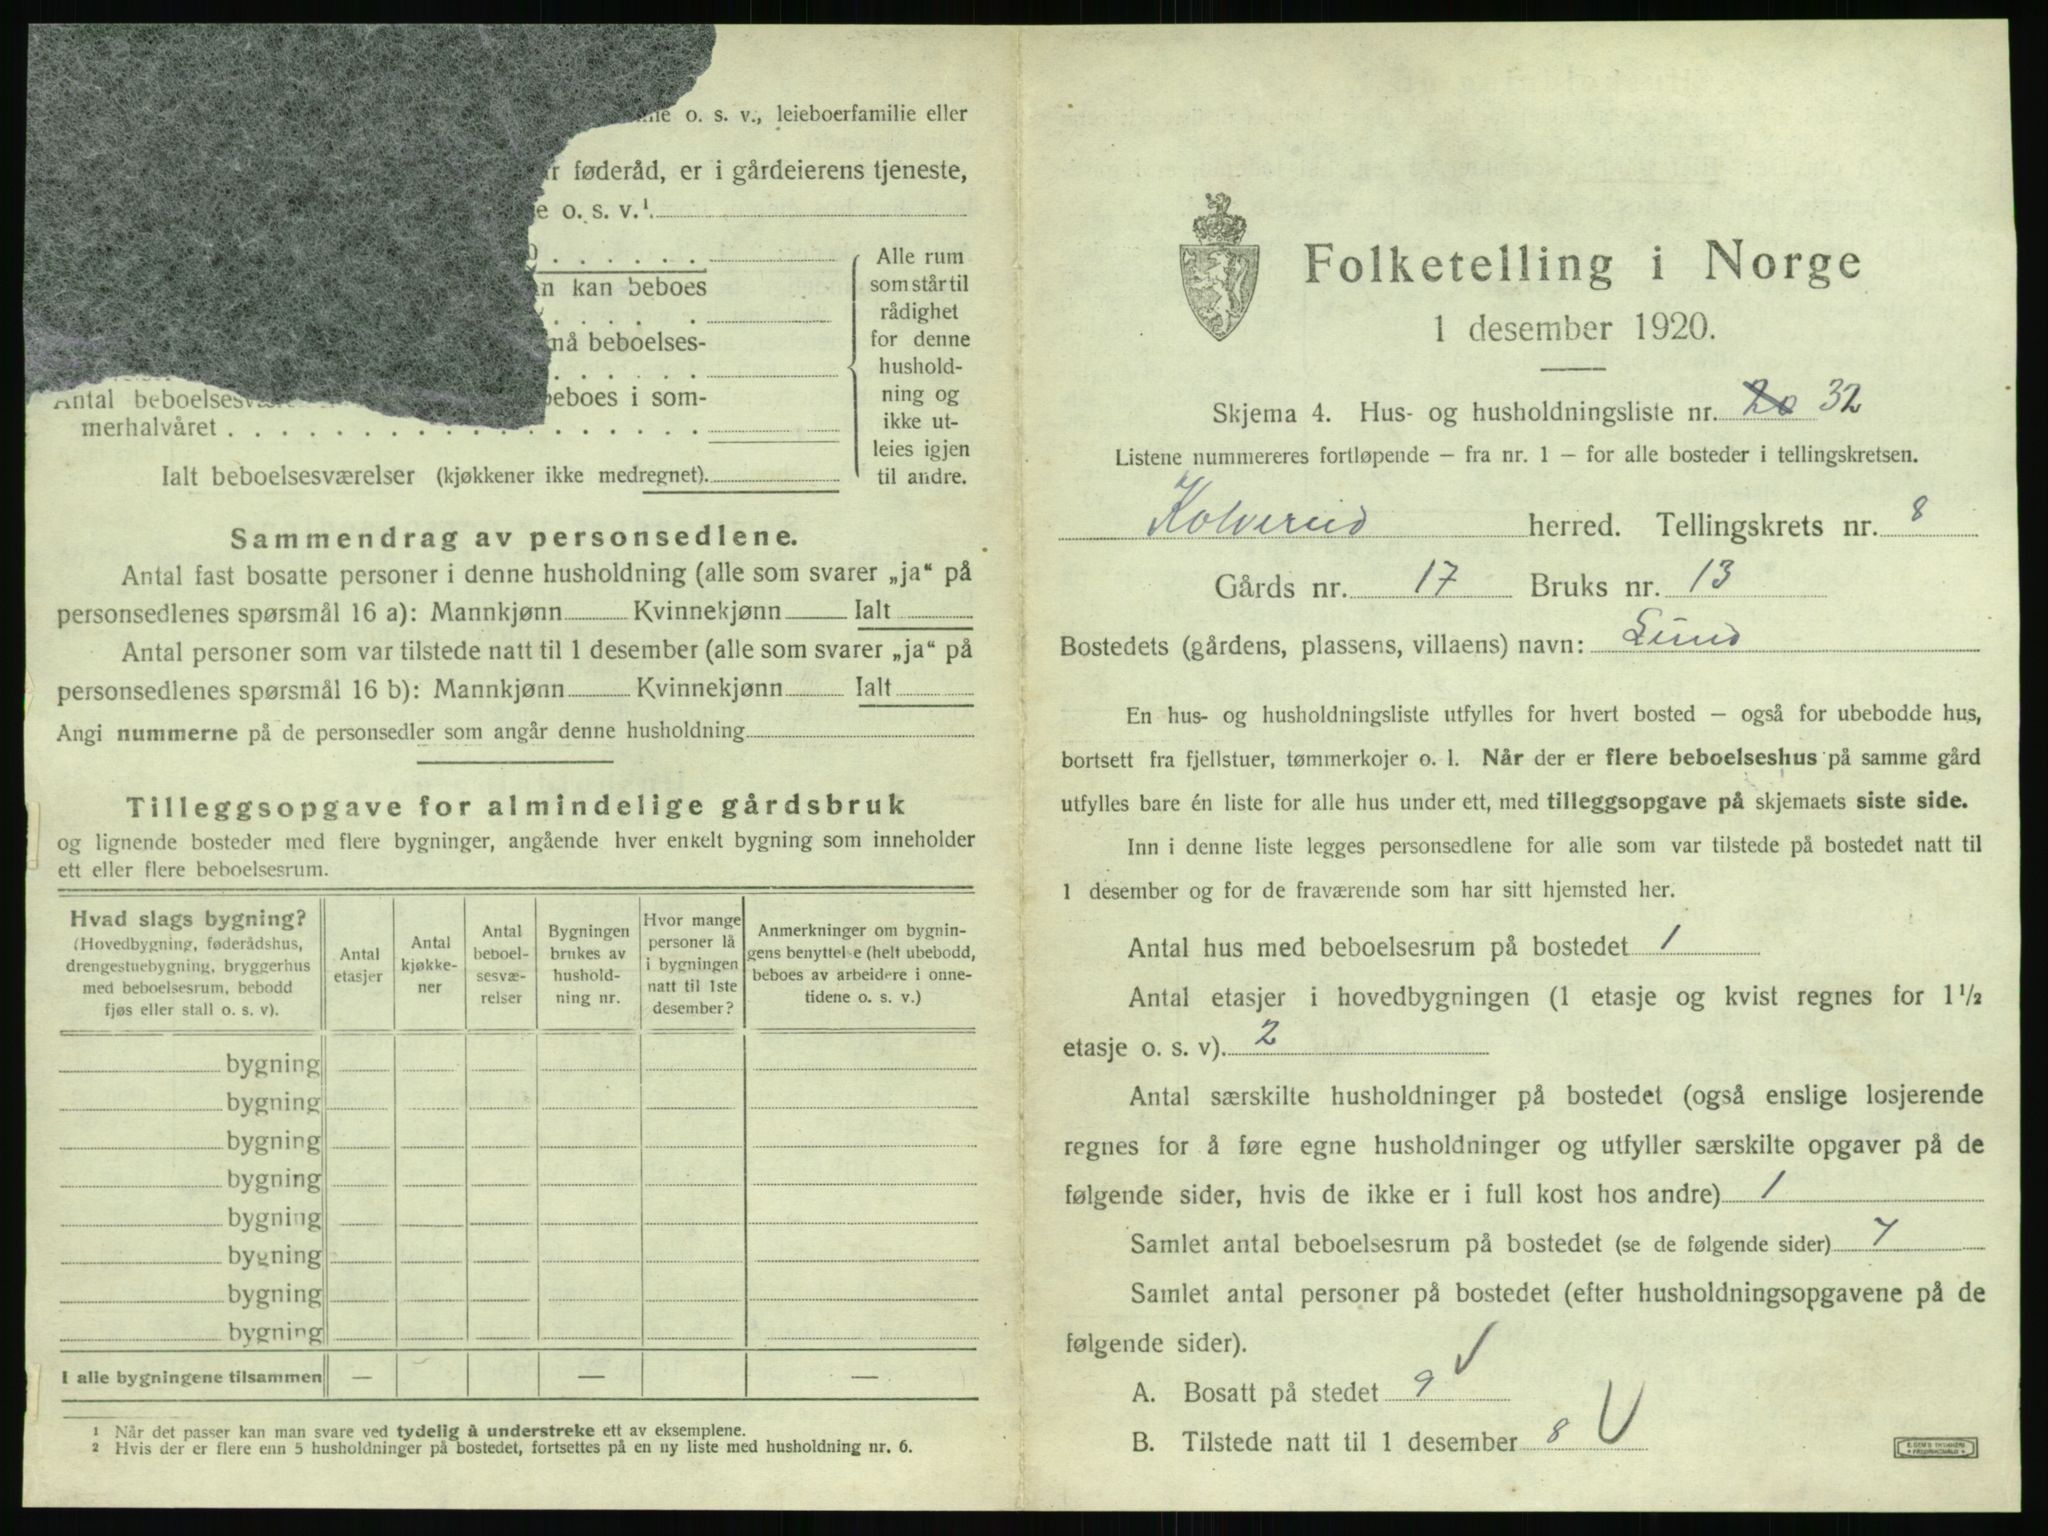 o. s. v., leieboerfamilie eller
føderåd, er i gårdeierens tjeneste,
o. s. v.¹
kan beboes
må beboelses-
Antal beboelsesvæ beboes i som-
merhalvåret
Ialt beboelsesværelser (kjøkkener ikke medregnet)
Alle rum
som står til
rådighet
for denne
hushold-
ning og
ikke ut-
leies igjen
til andre.
Sammendrag av personsedlene.
Antal fast bosatte personer i denne husholdning (alle som svarer „ja“ på
personsedlenes spørsmål 16 a): Mannkjønn Kvinnekjønn Ialt
Antal personer som var tilstede natt til 1 desember (alle som svarer „ja“ på
personsedlenes spørsmål 16 b): Mannkjønn Kvinnekjønn Ialt
Angi nummerne på de personsedler som angår denne husholdning
Tilleggsopgave for almindelige gårdsbruk
og lignende bosteder med flere bygninger, angående hver enkelt bygning som inneholder
ett eller flere beboelsesrum.
Hvad slags bygning?
(Hovedbygning, føderådshus,
drengestuebygning, bryggerhus
med beboelsesrum, bebodd
fjøs eller stall o. s. v).
Antal
etasjer
Antal
kjøkke-
ner
Antal
beboel-
sesvæ-
relser
Bygningen
brukes av
hushold-
ning nr.
Hvor mange
personer lå
i bygningen
natt til 1ste
desember?
Anmerkninger om bygnin-
gens benyttelse (helt ubebodd,
beboes av arbeidere i onne-
tidene o. s. v.)
bygning
bygning
bygning
bygning
bygning
bygning
bygning
bygning
I alle bygningene tilsammen — — —
¹ Når det passer kan man svare ved tydelig å understreke ett av eksemplene.
² Hvis der er flere enn 5 husholdninger på bostedet, fortsettes på en ny liste med husholdning nr. 6.
Folketelling i Norge
1 desember 1920.
Skjema 4. Hus- og husholdningsliste nr. 20 32
Listene nummereres fortløpende — fra nr. 1 — for alle bosteder i tellingskretsen.
Kolvereid herred. Tellingskrets nr. 8
Gårds nr. 17 Bruks nr. 13
Bostedets (gårdens, plassens, villaens) navn: Lund
En hus- og husholdningsliste utfylles for hvert bosted — også for ubebodde hus,
bortsett fra fjellstuer, tømmerkojer o. l. Når der er flere beboelseshus på samme gård
utfylles bare én liste for alle hus under ett, med tilleggsopgave på skjemaets siste side.
Inn i denne liste legges personsedlene for alle som var tilstede på bostedet natt til
1 desember og for de fraværende som har sitt hjemsted her.
Antal hus med beboelsesrum på bostedet 1
Antal etasjer i hovedbygningen (1 etasje og kvist regnes for 1½
etasje o. s. v). 2
Antal særskilte husholdninger på bostedet (også enslige losjerende
regnes for å føre egne husholdninger og utfyller særskilte opgaver på de
følgende sider, hvis de ikke er i full kost hos andre) 1
Samlet antal beboelsesrum på bostedet (se de følgende sider) 7
Samlet antal personer på bostedet (efter husholdningsopgavene på de
følgende sider).
A. Bosatt på stedet 9
B. Tilstede natt til 1 desember 8